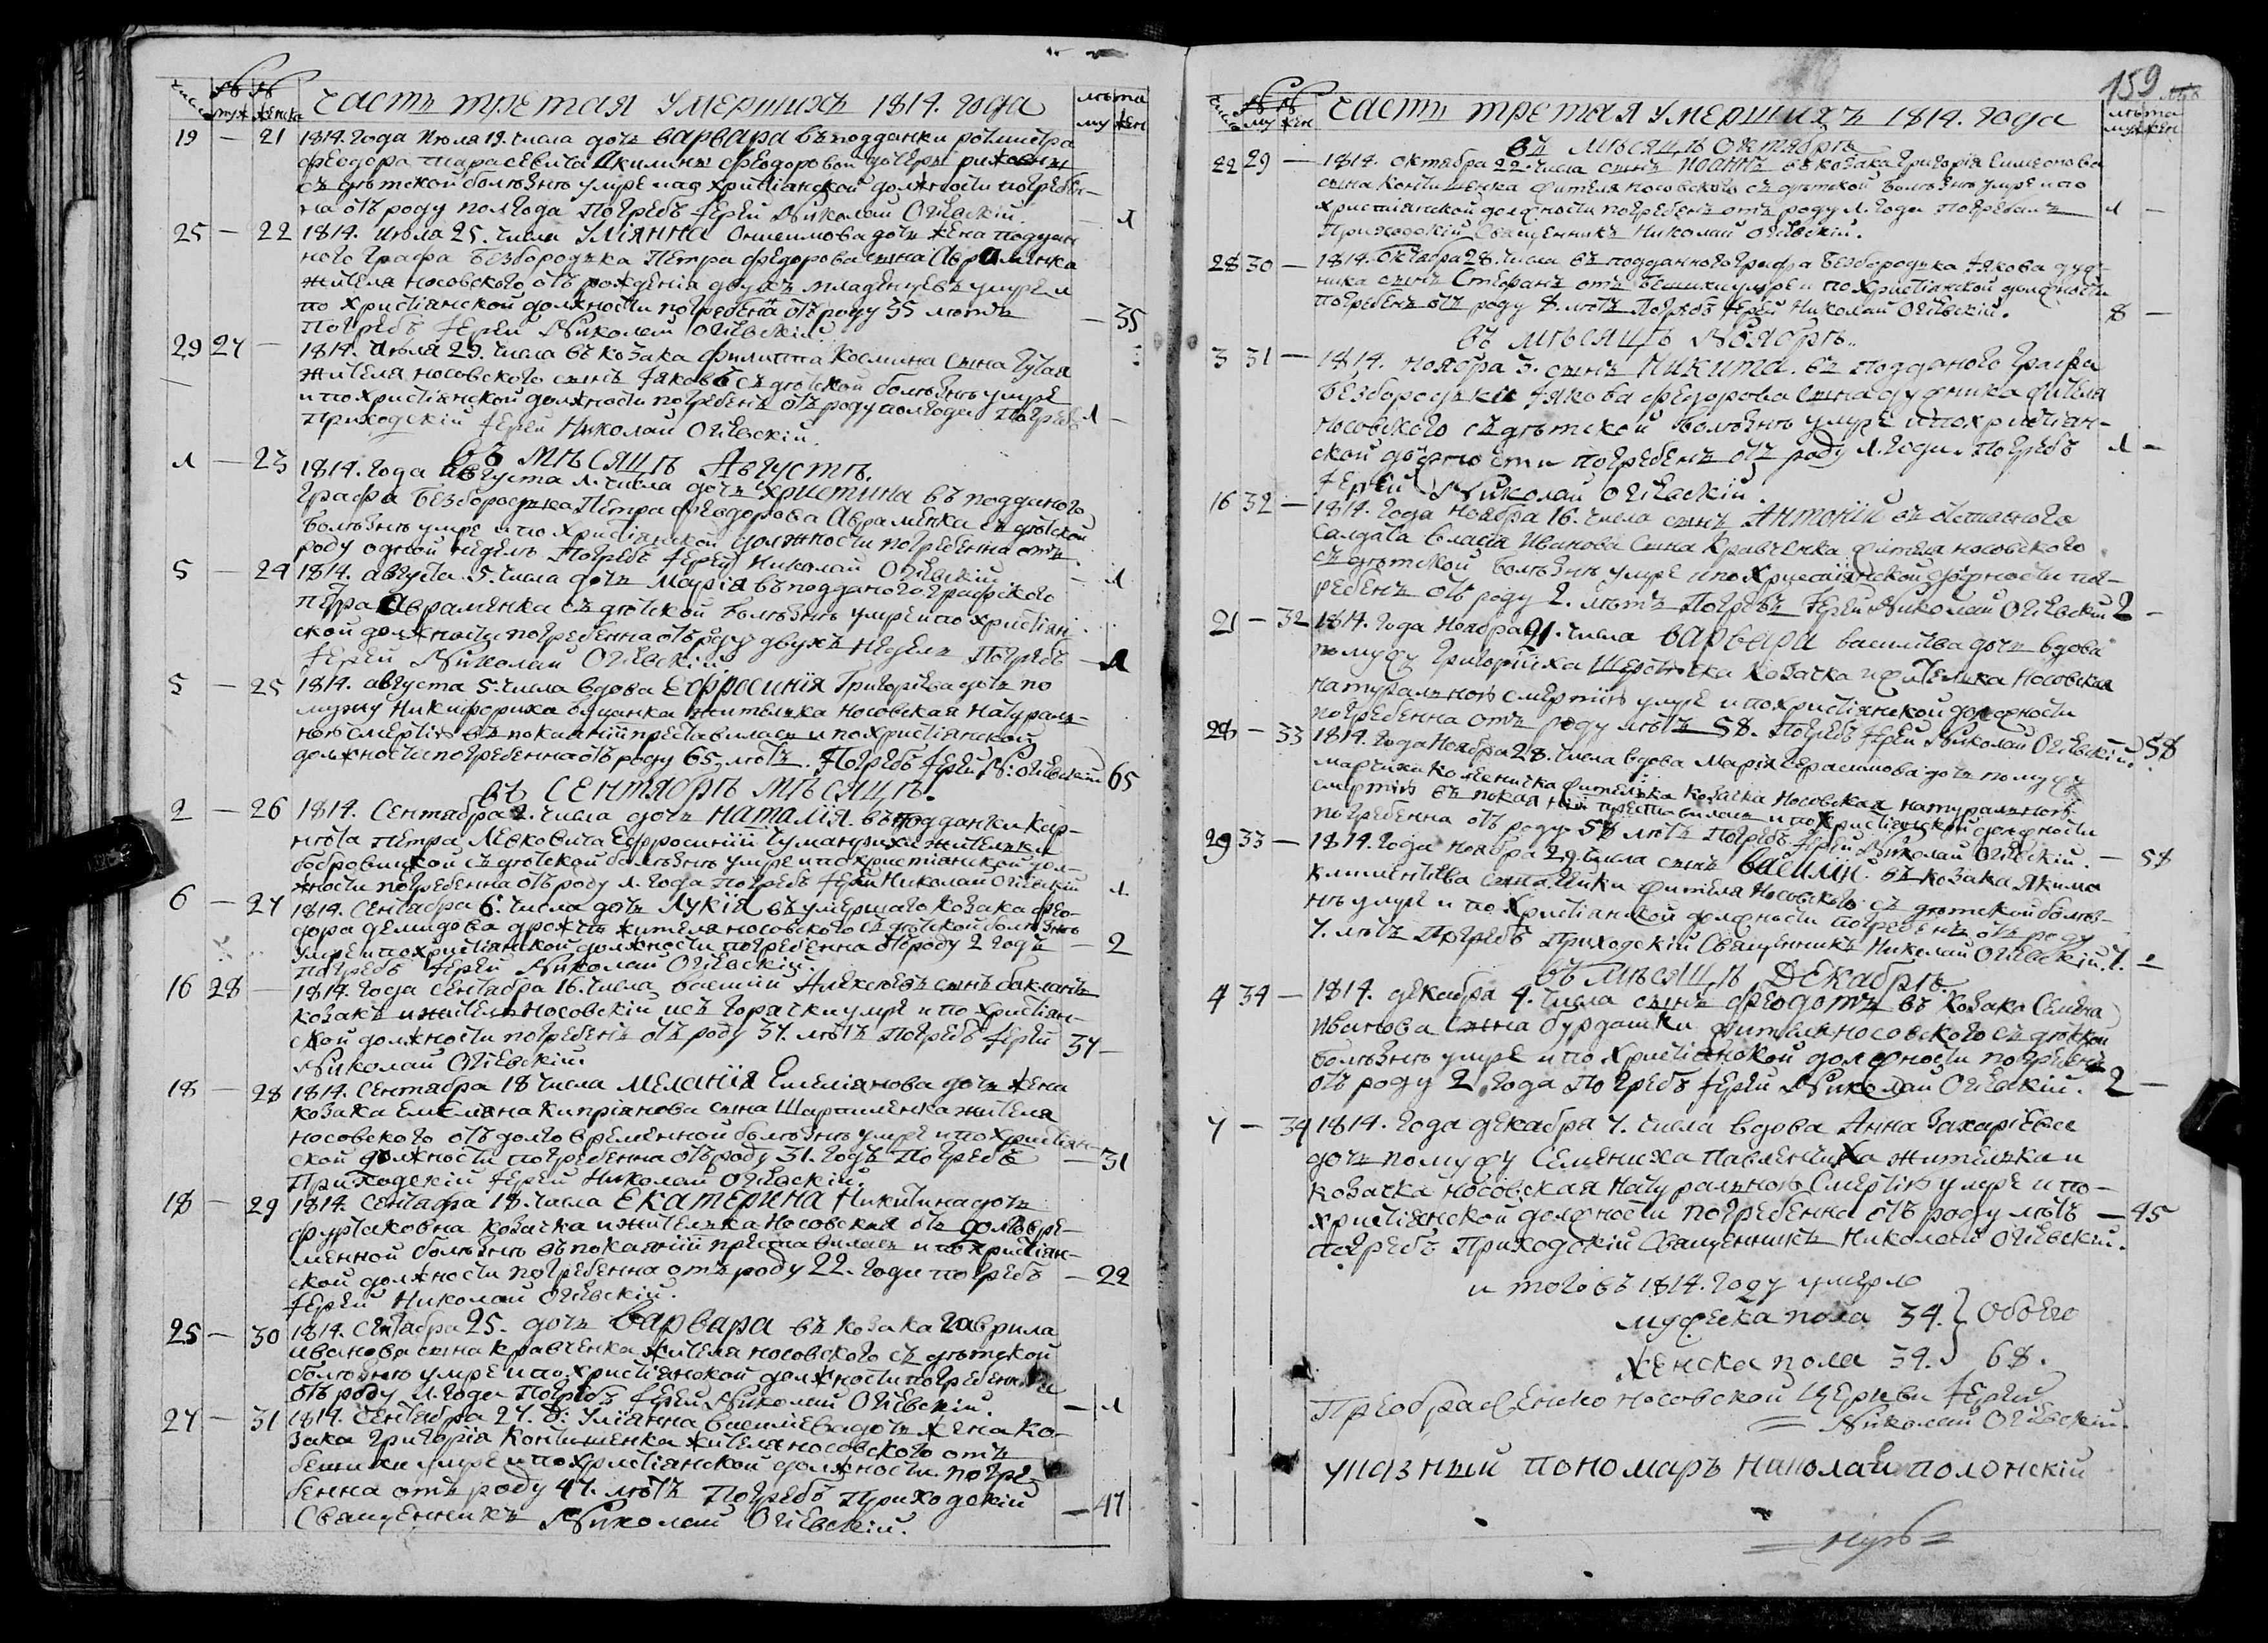 числа №№ муж женска Часть третая умершихъ 1814. года лѣта му жен
19 — 21 1814. года Июля 19. числа дочь Варвара въ подданки ротмистра
Феодора Тарасевича Акилины Феодоровой дочери
съ дѣтской болѣзнѣ умре по христіанской должности погребе-
на отъ роду полгода Погребъ Іерей Николай Огіевскій. — 1
25 — 22 1814. Июля 25. числа Уліянна Онисимова дочь жена поддан
ного Графа Безбородька Петра Федорова сына Авраменка
жителя носовского отъ рожденія двухъ младенцевъ умре и
по христіанской должности погребена отъ роду 35 лѣтъ
Погребъ Іерей Николай Огіевскій. — 35
29 27 — 1814. Июля 29. числа въ козака Филиппа Космина сына Гутая
жителя носовского сынъ Іяковъ съ дѣтской болѣзнѣ умре
и по христіанской должности погребенъ отъ роду полгода Погребъ 1 —
Приходскій Іерей Николай Огіевскій.
Въ мѣсяцѣ Августѣ.
1 — 23 1814. года августа 1. числа дочь Христина въ подданого
Графа Безбородька Петра Феодорова Авраменка съ дѣтской
болѣзнѣ умре и по христіанской должности погребенна отъ
роду одной недели Погребъ Іерей Николай Огіевскій — 1
5 — 24 1814. августа 5. числа дочь Марія въ подданого графского
Петра Авраменка съ дѣтской болѣзнѣ умре и по христіян-
ской должности погребенна отъ роду двухъ недель Погребъ — 1
Іерей Николай Огіевскій
5 — 25 1814. августа 5. числа вдова Ефросинія Григоріева дочь по
мужу Никифориха жителька Носовская натураль-
ною смертію въ покаяніи преставилась и по христіянской
должности погребенна отъ роду 65, лѣтъ. Погребъ Іерей Н: Огіевскій 65
въ Сентябрѣ мѣсяцѣ.
2 — 26 1814. Сентября 2. числа дочь Наталія въ подданки кор-
нета Петра Левковича Ефросиніи Туманихи жительки
бобровицкой съ дѣтской болѣзнѣ умре и по христіянской дол-
жности погребенна отъ роду 1. года Погребъ Іерей Николай Огіевскій 1.
6 — 27 1814. Сентября 6. числа дочь Лукія въ умершаго козака Фео-
дора Демидова жителя носовского съ дѣтской болѣзнѣ
умре и по христіянской должности погребенна отъ роду 2 годъ — 2
погребъ Іерей Николай Огіевскій.
16 28 — 1814. года Сентября 16. числа Василий Алексѣевъ сынъ бакланъ
козакъ и житель Носовскій изъ горячки умре и по христіян-
ской должности погребенъ отъ роду 37. лѣтъ Погребъ Іерей 37 —
Николай Огіевскій.
18 — 28 1814. Сентября 18 числа Меланія Емеліянова дочь жена
козака Емеліяна Кипріянова сына Шараменка жителя
носовского отъ долговременной болѣзнѣ умре и по христіян-
ской должности погребенна отъ роду 31. годъ Погребъ — 31
Приходскій Іерей Николай Огіевскій.
18 — 29 1814. Сентября 18. числа Екатерина Никитина дочь
козачка и жителька Носовская отъ долговре-
менной болѣзнѣ въ покаяніи преставилась и по христіян-
ской должности погребенна отъ роду 22. годи погребъ — 22
Іерей Николай Огіевскій.
25 — 30 1814. Сентября 25. дочь Варвара въ козака Гаврила
Иванова сына Кравченка жителя носовского съ дѣтской
болѣзнѣ умре и по христіянской должности погребенна
отъ роду 1. года Погребъ Іерей Николай Огіевскій. — 1
27 — 31 1814. Сентября 27. Уліянна Василіева дочь жена ко-
зака Григорія Контишенка жителя носовского отъ
бешихи умре и по христіянской должности погре-
бенна отъ роду 47. лѣтъ Погребъ Приходскій — 47
Священникъ Николай Огіевскій.
159
числа №№ му жен Часть третая умершихъ 1814. года лѣта муж жен
въ мѣсяцѣ Октябрѣ
22 29 — 1814. октября 22. числа сынъ Иоаннъ въ козака Григорія Симеонова
сына Контишенка жителя носовского съ дѣтской болѣзнѣ умре и по
христіянской должности погребенъ отъ роду 1. года Погребалъ 1 —
Приходскій Священникъ Николай Огіевскій.
28 30 — 1814. Октября 28. числа въ подданного Графа Безбородька Іякова дуд-
ника сынъ Стефанъ отъ бешихи умре и по христіянской должности
погребенъ отъ роду 8. лѣтъ Погребъ Іерей Николай Огіевскій. 8 —
въ мѣсяцѣ Ноябрѣ..
3 31 — 1814. ноября 3. сынъ Никита. въ подданого Графа
Безбородьки Іякова Федорова сына дудника жителя
носовского съ дѣтской болѣзнѣ умре и по христіян-
ской должности погребенъ отъ роду 1. годи. Погребъ 1 —
Іерей Николай Огіевскій.
16 32 — 1814. года Ноября 16. числа сынъ Антоній въ отставного
салдата Власія Иванова сына Кравченка жителя носовского
съ дѣтской болѣзнѣ умре и по христіянской должности пог-
ребенъ отъ роду 2. лѣтъ Погребъ Іерей Николай Огіевскій 2 —
21 — 32 1814. года Ноября 21. числа Варвара Василіева дочь вдова
по мужу Григорііха козачка и жителька Носовская
натуральною смертію умре и по христіянской должности
погребенна отъ роду лѣтъ 58. Погребъ Іерей Николай Огіевскій. 58
28 — 33 1814. года Ноября 28. числа вдова Марія Герасимова дочь по мужу
жителька козачка Носовская натуральною
смертію въ покаяніи преставилась и по христіянской должности
погребенна отъ роду 58 лѣтъ Погребъ Іерей Николай Огіевскій. — 58
29 33 — 1814. года ноября 29. числа сынъ Василій. въ козака Якима
Климентіева сына жителя Носовского съ дѣтской болѣз-
нѣ умре и по христіянской должности погребенъ отъ роду
7. лѣтъ Погребъ Приходскій Священникъ Николай Огіевскій. 7. —
въ мѣсяцѣ Декабрѣ.
4 34 — 1814. декабря 4. числа сынъ Феодотъ въ козака Семена
Иванова сына бурдашки жителя носовского съ дѣтской
болѣзнѣ умре и по христіянской должности погребенъ
отъ роду 2 года Погребъ Іерей Николай Огіевскій. 2 —
7 — 34 1814. года декабря 7. числа вдова Анна Захаріева
дочь по мужу Семениха Павленчиха жителька и
козачка носовская натуральною смертію умре и по-
христіянской должности погребенна отъ роду лѣтъ — 45
погребъ Приходскій Священникъ Николай Огіевскій.
и того въ 1814. году умерло
мужеска пола 34. } обоего
женска пола 34. 68.
Преображенско носовской Церкви Іерей
Николай Огіевскій.
указный пономаръ Николай Полонскій